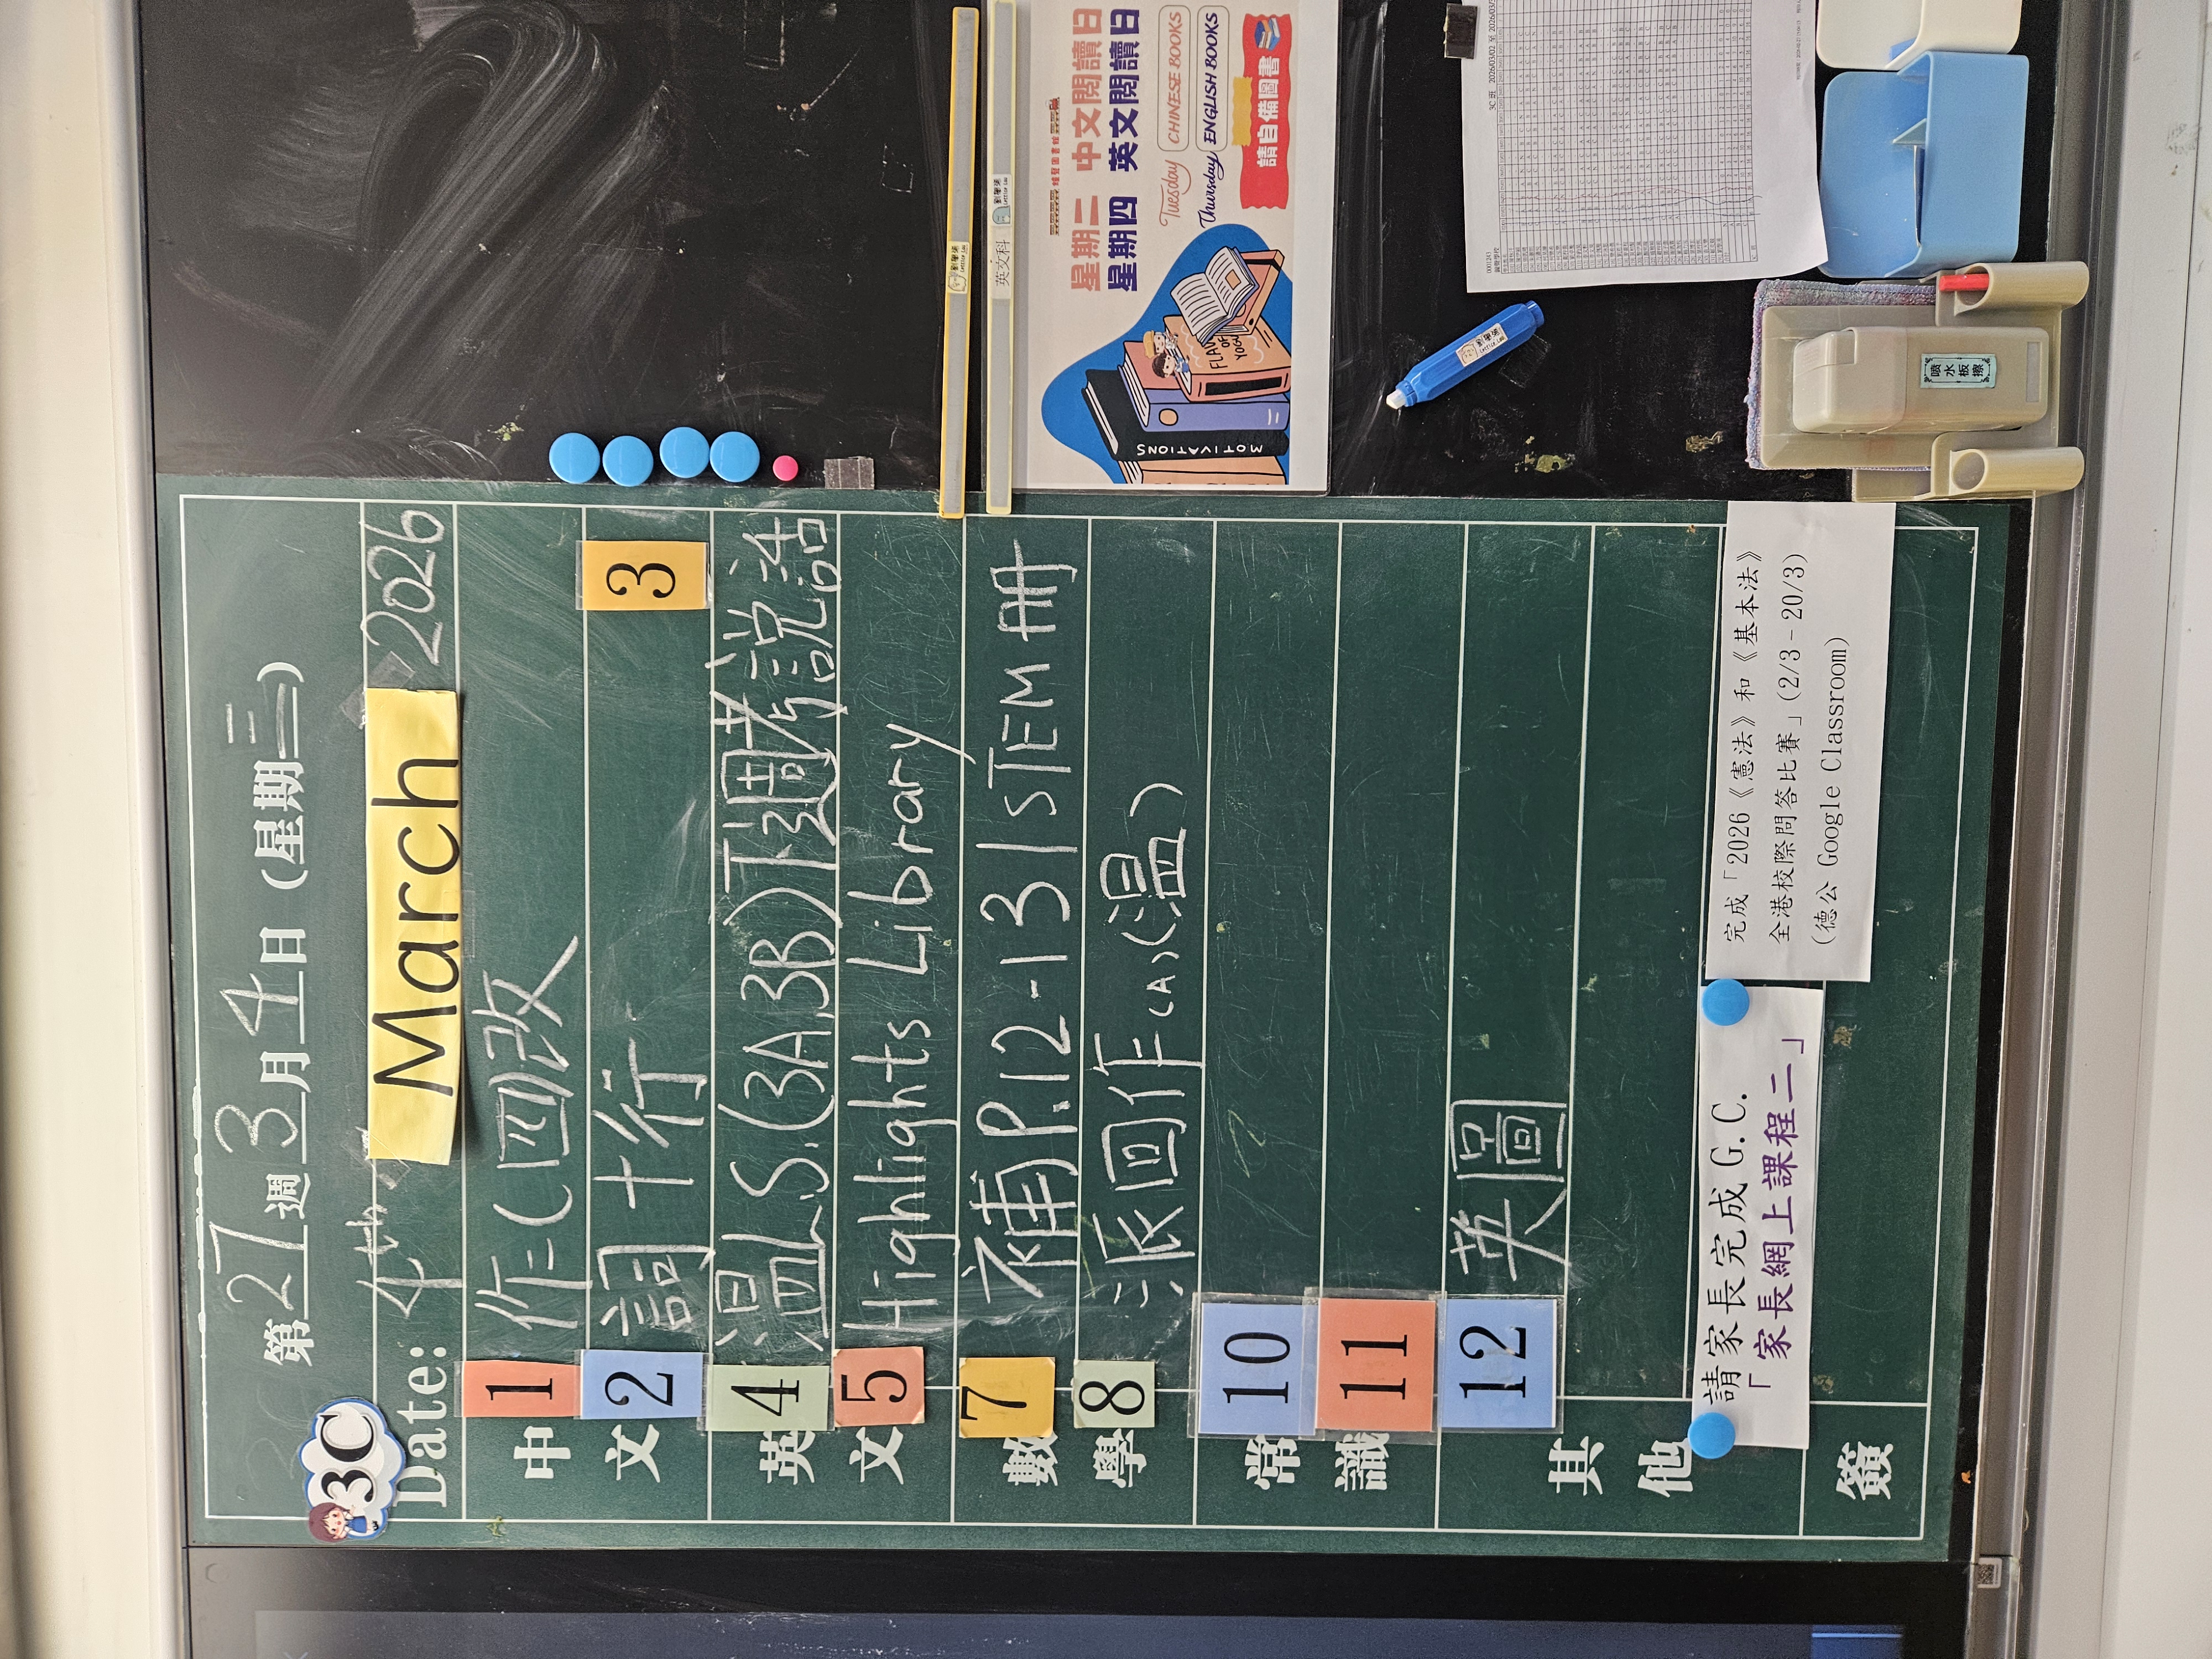 第27週3月4日(星期三)
3C
Date: 4th March 2026
中文
1 作(四)改
2 詞十行
3
英文
4 温L.S.(3A,3B)下週考說話
5 Highlights Library
數學
7 補P.12-13 | STEM冊
8 派回作(A)(溫)
常識
10
11
其他
12 英圖
請家長完成 G.C.
「家長網上課程二」
完成「2026《憲法》和《基本法》
全港校際問答比賽」(2/3-20/3)
(德公 Google Classroom)
簽
英文科
星期二 中文閱讀日
星期四 英文閱讀日
Tuesday CHINESE BOOKS
Thursday ENGLISH BOOKS
請自備圖書
MOTIVATIONS
噴水板擦
3C 班